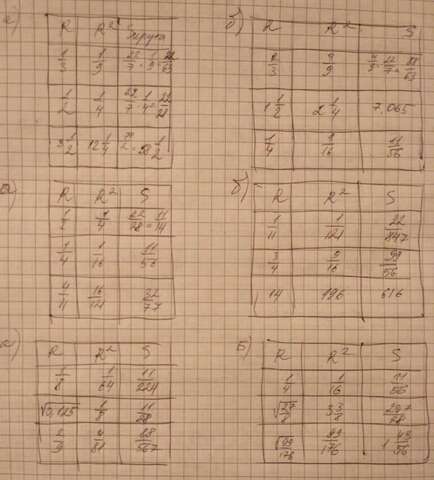 а)
R R² Sкруга
1/3 1/9 22/7 · 1/9 = 22/63
1/2 1/4 22/7 · 1/4 = 22/28
3 1/2 12 1/4
б)
R R² S
2/3 4/9 4/9 · 22/7 = 88/63
1 1/2 2 1/4 7,065
1/4 1/16 11/56
а)
R R² S
1/2 1/4 22/28 = 11/14
1/4 1/16 11/56
4/11 16/121
б)
R R² S
1/11 1/121 22/847
3/4 9/16 99/56
14 196 616
а)
R R² S
1/8 1/64 11/224
√0,125 1/8 11/28
2/9 4/81 88/567
б)
R R² S
1/4 1/16 11/56
√(27/8) 297/28
√(99/176) 99/176 1 43/56